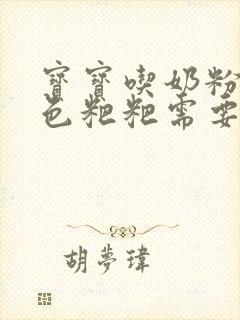 寶寶喫奶粉
色粑粑需要
胡夢瑋